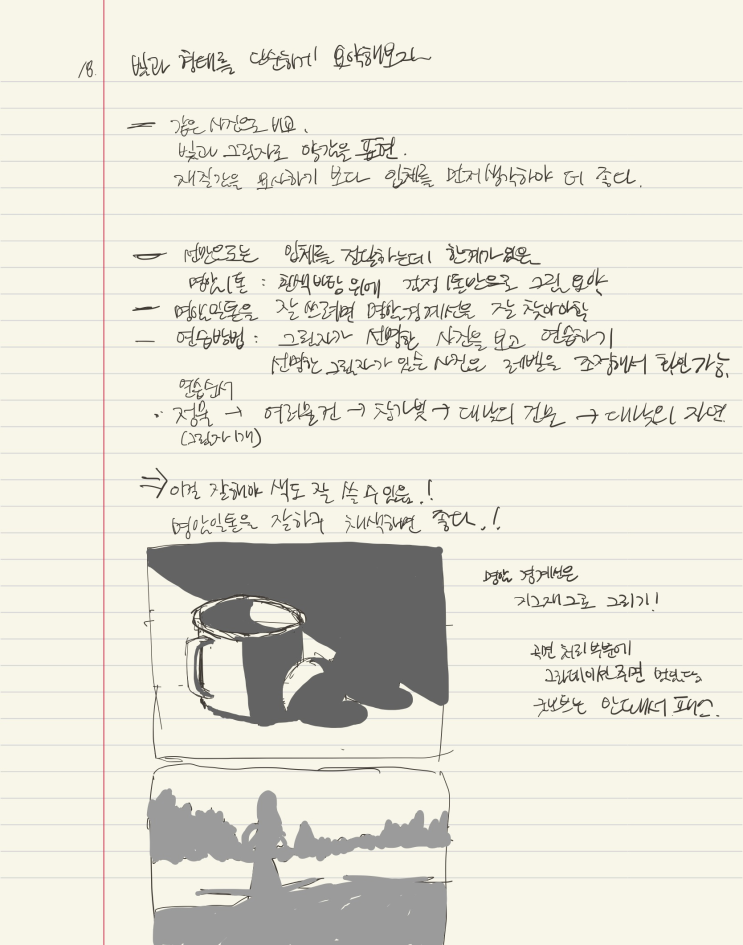 18. 빛과 형태를 단순하게 요약해보자
— 같은 사진으로 비교.
빛과 그림자로 양감을 표현.
재질감을 묘사하기 보다 입체를 먼저 생각하야 더 좋다.
— 선만으로는 입체를 전달하는데 한계가 있음
명암1톤 : 흰색바탕 위에 검정 1톤만으로 그린 요약
— 명암일톤을 잘 쓰려면 명암경계선을 잘 찾아야함
— 연습방법 : 그림자가 선명한 사진을 보고 연습하기
선명한 그림자가 있는 사진은 레벨을 조정해서 확인가능.
연습순서
· 정물 → 여러물건 → 창가빛 → 대낮의 건물 → 대낮의 자연
(그림자1개)
⇒ 이걸 잘해야 색도 잘 쓸 수 있음.!
명암일톤을 잘하구 채색하면 좋다.!
명암 경계선은
지그재그로 그리기!
곡면 처리 부분에
그라데이션주면
안돼서 패스.